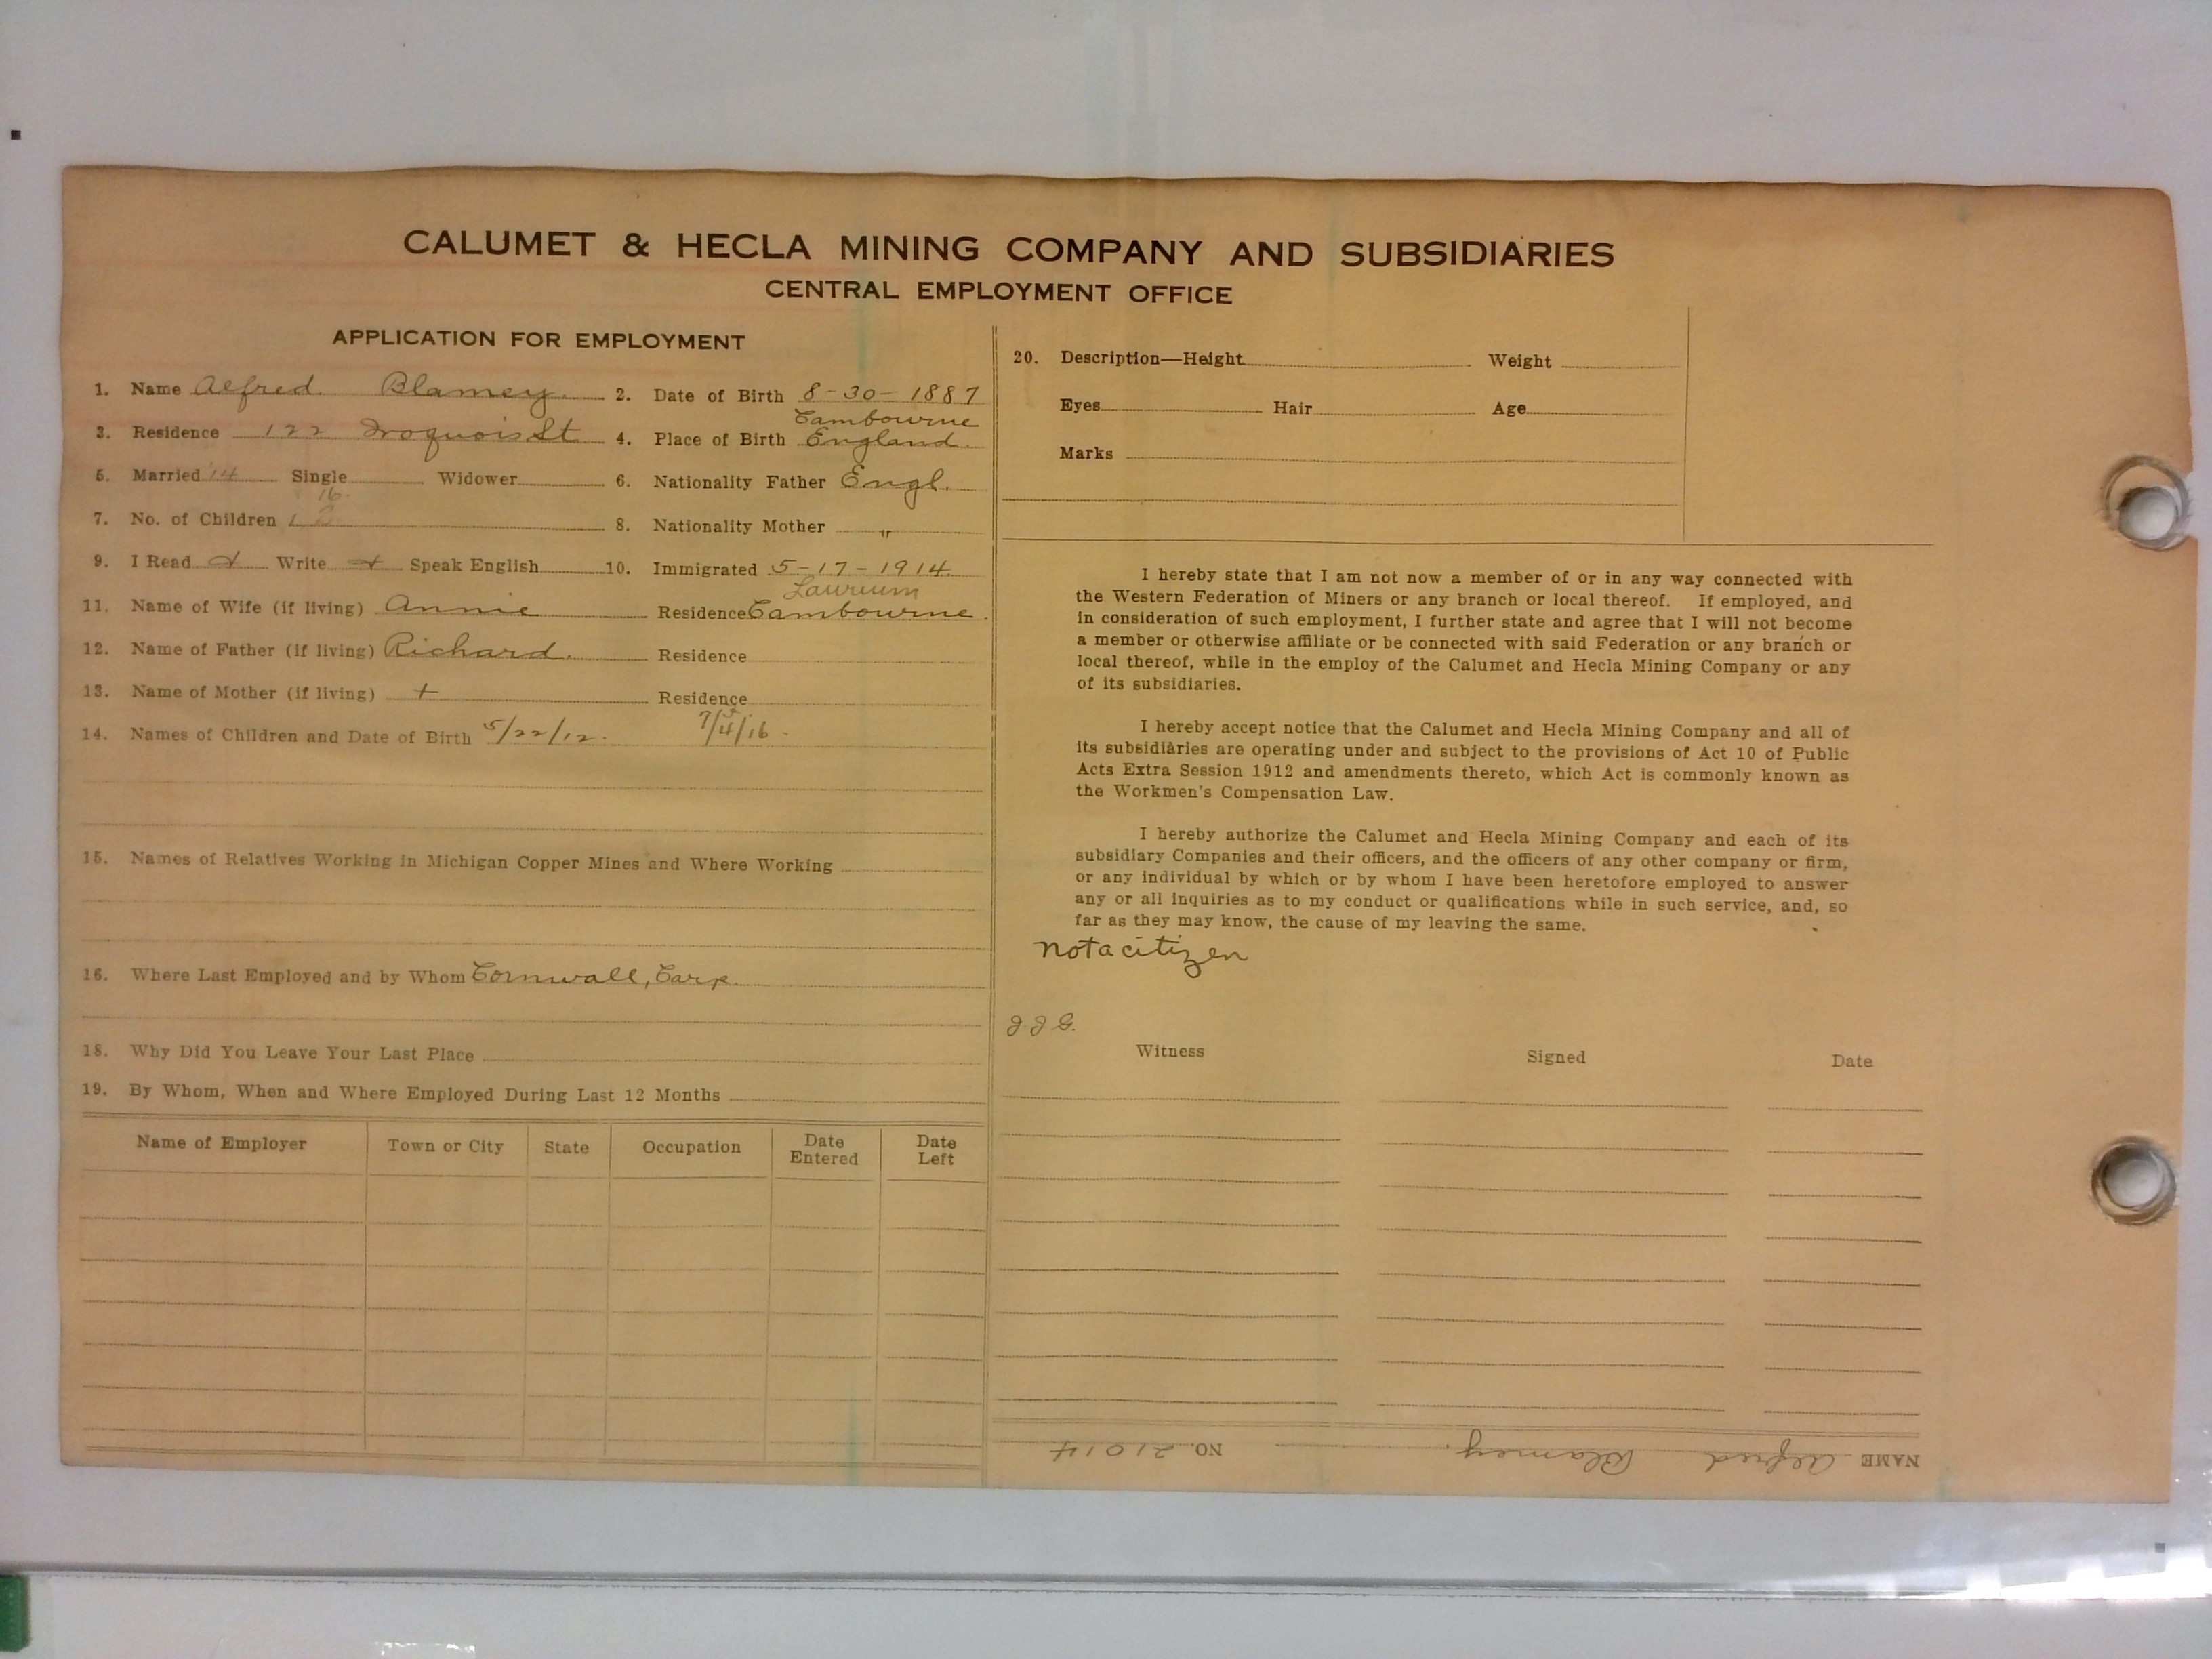 CALUMET & HECLA MINING COMPANY AND SUBSIDIARIES
CENTRAL EMPLOYMENT OFFICE
APPLICATION FOR EMPLOYMENT
1. Name Alfred Blamey 2. Date of Birth 8-30-1887
3. Residence 122 Iroquois St 4. Place of Birth Cambourne England
5. Married 14 Single Widower 6. Nationality Father Engl.
16.
7. No. of Children 1 2 8. Nationality Mother "
9. I Read Write Speak English 10. Immigrated 5-17-1914
Laurium
11. Name of Wife (if living) Annie Residence Cambourne
12. Name of Father (if living) Richard. Residence
13. Name of Mother (if living) + Residence
14. Names of Children and Date of Birth 5/22/12. 7/4/16
15. Names of Relatives Working in Michigan Copper Mines and Where Working
16. Where Last Employed and by Whom Cornwall, Carp.
18. Why Did You Leave Your Last Place
19. By Whom, When and Where Employed During Last 12 Months
Name of Employer Town or City State Occupation Date Entered Date Left
20. Description—Height Weight
Eyes Hair Age
Marks
I hereby state that I am not now a member of or in any way connected with
the Western Federation of Miners or any branch or local thereof. If employed, and
in consideration of such employment, I further state and agree that I will not become
a member or otherwise affiliate or be connected with said Federation or any branch or
local thereof, while in the employ of the Calumet and Hecla Mining Company or any
of its subsidiaries.
I hereby accept notice that the Calumet and Hecla Mining Company and all of
its subsidiaries are operating under and subject to the provisions of Act 10 of Public
Acts Extra Session 1912 and amendments thereto, which Act is commonly known as
the Workmen's Compensation Law.
I hereby authorize the Calumet and Hecla Mining Company and each of its
subsidiary Companies and their officers, and the officers of any other company or firm,
or any individual by which or by whom I have been heretofore employed to answer
any or all inquiries as to my conduct or qualifications while in such service, and, so
far as they may know, the cause of my leaving the same.
not a citizen
J.J.G.
Witness Signed Date
NAME Alfred Blamey. NO. 21014